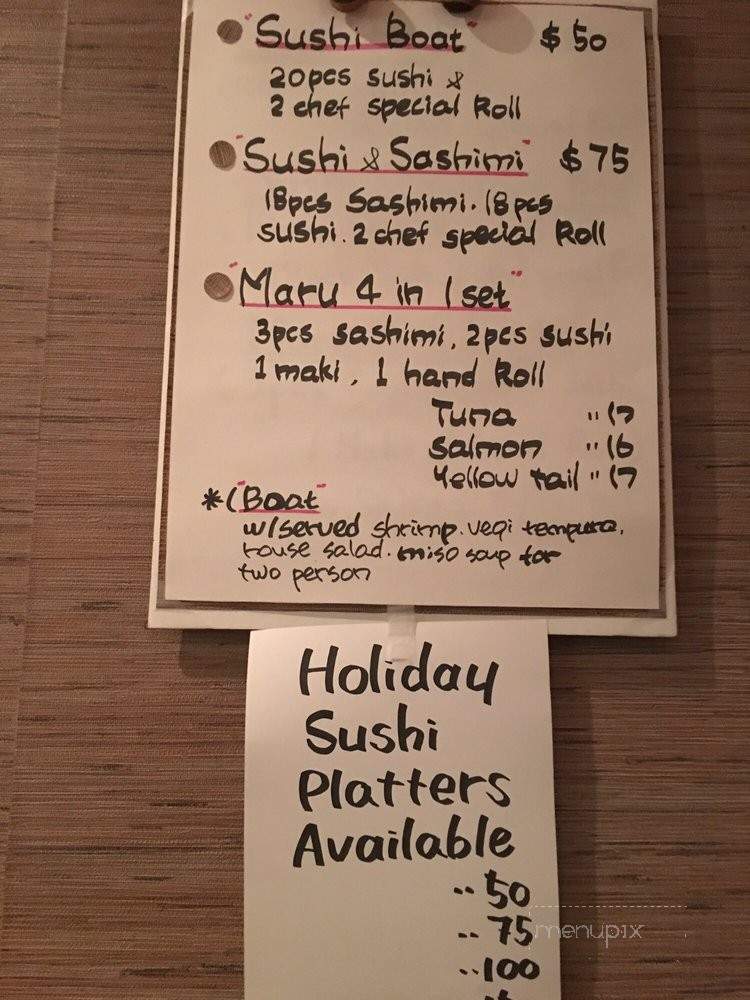 "Sushi Boat" $50
20pcs sushi &
2 chef special Roll
"Sushi & Sashimi" $75
18pcs Sashimi. 18pcs
sushi. 2 chef special Roll
"Maru 4 in 1 set"
3pcs sashimi, 2pcs sushi
1 maki, 1 hand Roll
Tuna " 17
salmon " 16
Yellow tail " 17
*("Boat"
w/served shrimp. vegi tempura,
house salad. miso soup for
two person
Holiday
Sushi
Platters
Available
-- 50
-- 75
--100
menupix